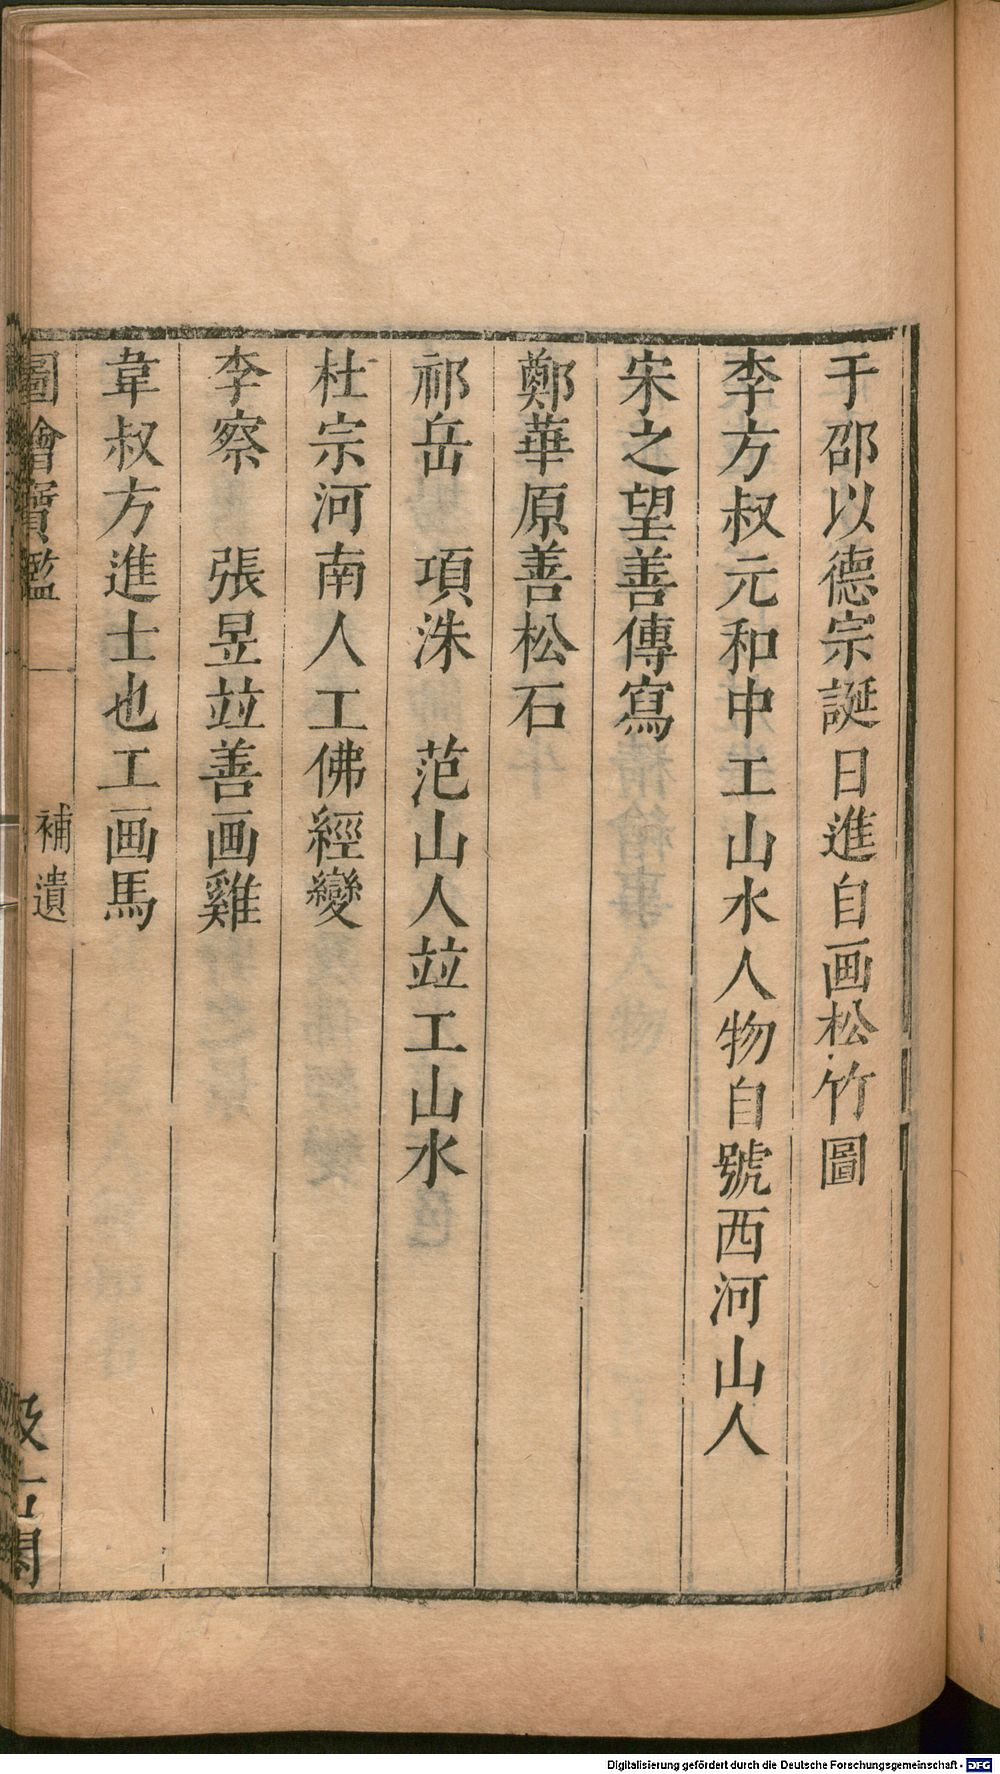 于邵以德宗誕日進自画松竹圖
李方叔元和中工山水人物自號西河山人
宋之望善傳寫
鄭華原善松石
祁岳　項洙　范山人竝工山水
杜宗河南人工佛經變
李察　張昱竝善画雞
韋叔方進士也工画馬
圖繪寶鑑　補遺　汲古閣
Digitalisierung gefördert durch die Deutsche Forschungsgemeinschaft - DFG